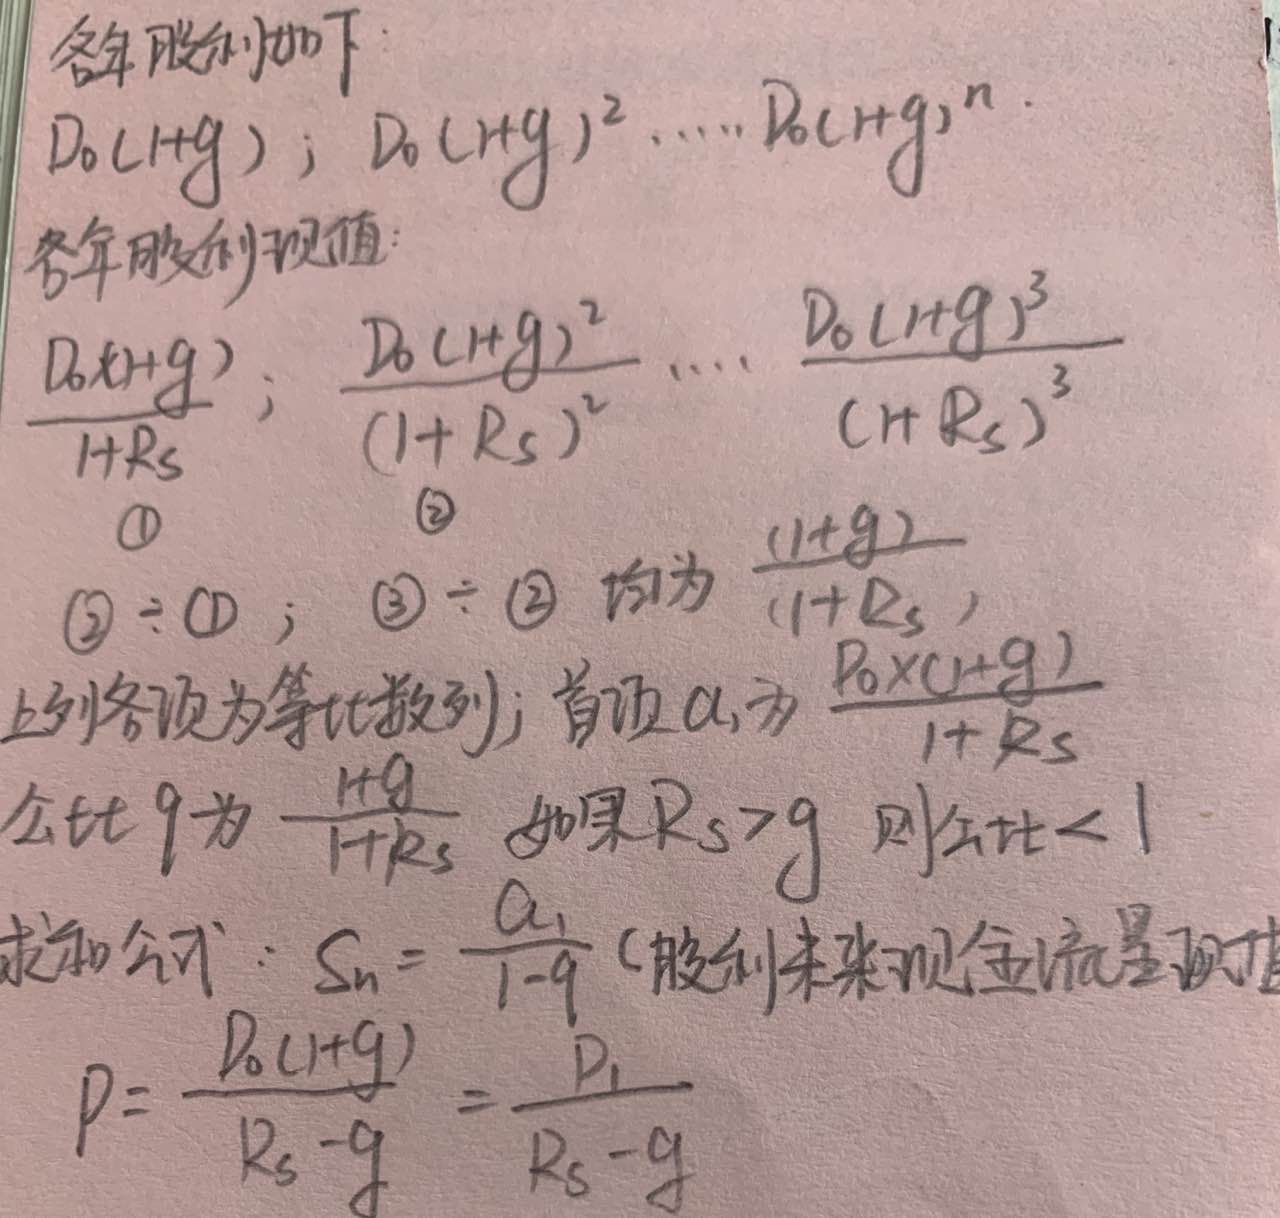 各年股利如下:
D₀(1+g); D₀(1+g)² ..... D₀(1+g)ⁿ.
各年股利现值:
D₀×(1+g)/1+Rs; D₀(1+g)²/(1+Rs)² .... D₀(1+g)³/(1+Rs)³
① ②
②÷①; ③÷② 均为 (1+g)/(1+Rs)
上列各项为等比数列; 首项a₁为 D₀×(1+g)/1+Rs
公比q为 1+g/1+Rs 如果Rs>g 则公比<1
求和公式: Sn = a₁/1-q (股利未来现金流量现值
P = D₀(1+g)/Rs-g = D₁/Rs-g